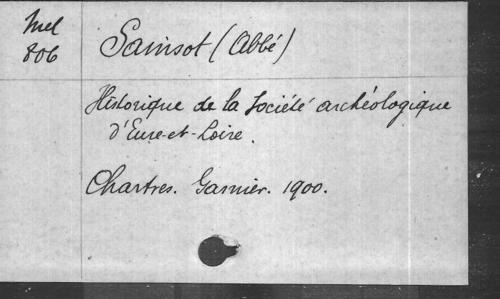 Mel
806
Sainsot (Abbé)
Historique de la Société archéologique
d'Eure-et-Loire.
Chartres. Garnier. 1900.